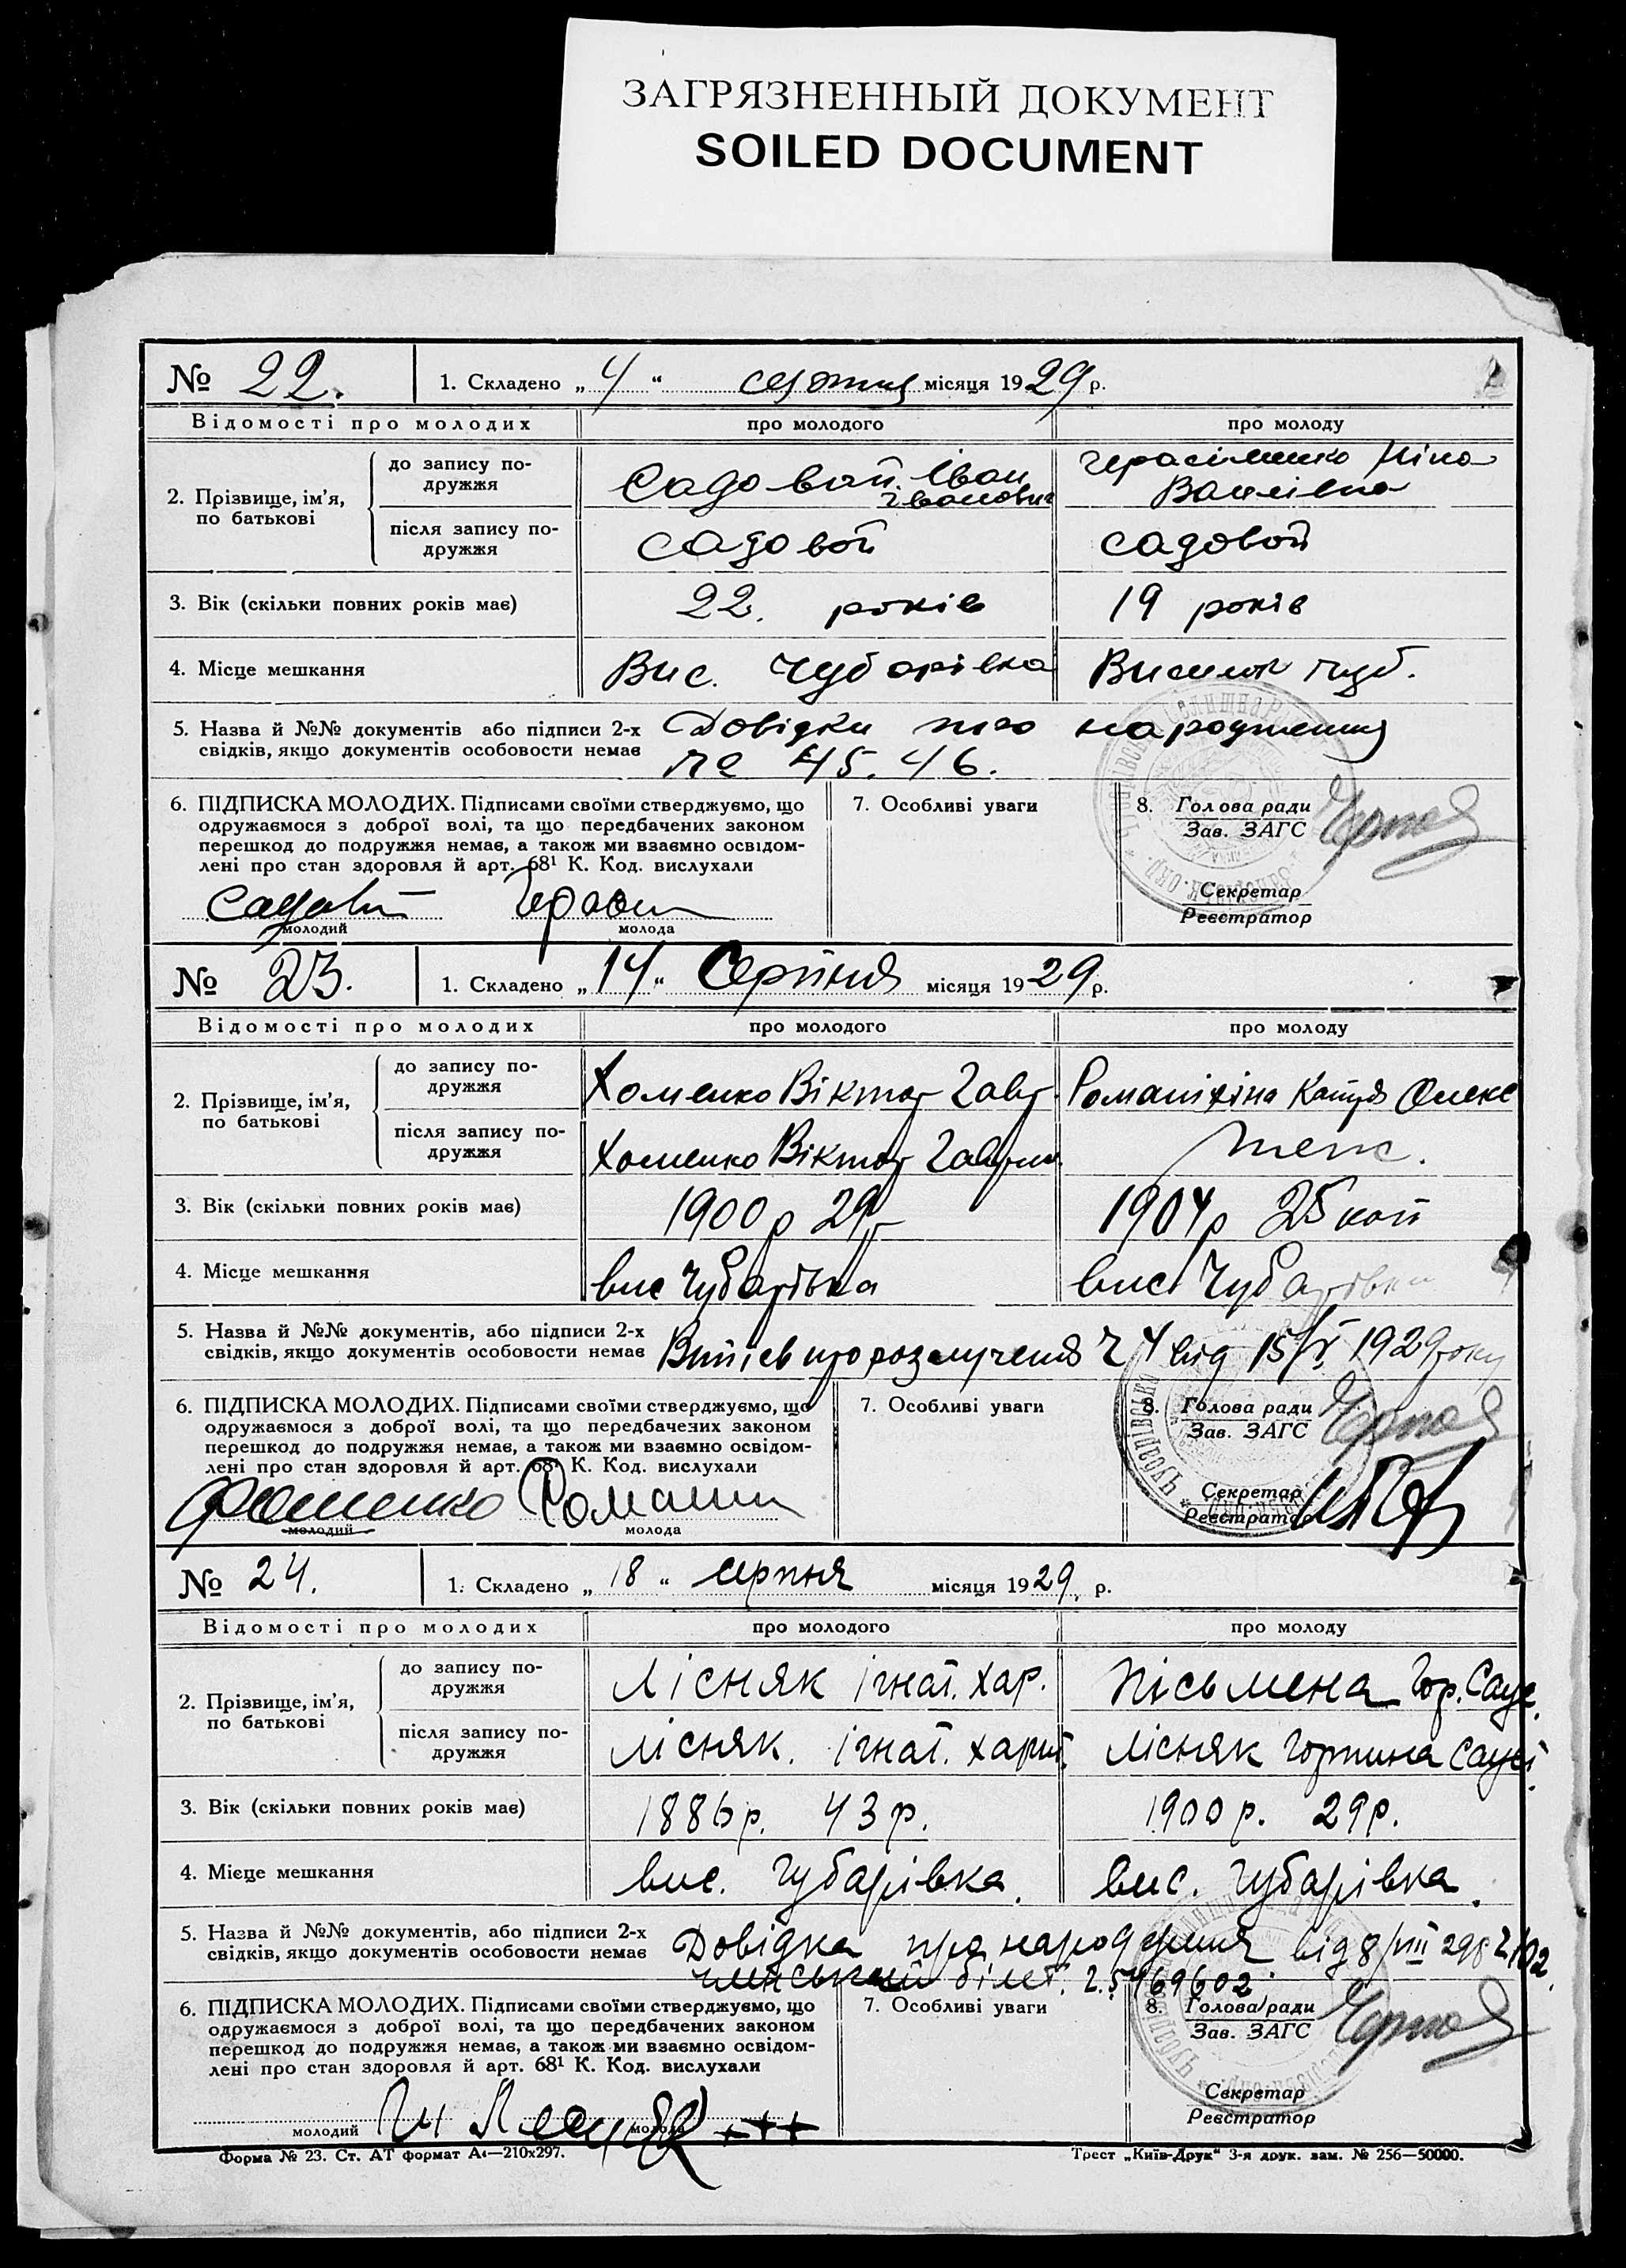 ЗАГРЯЗНЕННЫЙ ДОКУМЕНТ
SOILED DOCUMENT
№ 22. 1. Складено „ 4 “ серпня місяця 1929 р.
Відомості про молодих про молодого про молоду
2. Прізвище, ім’я, по батькові
до запису подружжя Садовой Іван Іванович Герасіменко Ніна Василівна
після запису подружжя Садовой Садовой
3. Вік (скільки повних років має) 22. років 19 років
4. Місце мешкання Вис. Чубарівка Висилок Чуб.
5. Назва й №№ документів або підписи 2-х Довідки про народження
свідків, якщо документів особовости немає № 45. 46.
6. ПІДПИСКА МОЛОДИХ. Підписами своїми стверджуємо, що 7. Особливі уваги 8. Голова ради
одружаємося з доброї волі, та що передбачених законом Зав. ЗАГС
перешкод до подружжя немає, а також ми взаємно освідом-
лені про стан здоровля й арт. 68¹ К. Код. вислухали
Секретар
Садовий Реєстратор
молодий молода
№ 23. 1. Складено „ 14 “ Серпня місяця 1929 р.
Відомості про молодих про молодого про молоду
2. Прізвище, ім’я, по батькові
до запису подружжя Хоменко Віктор Гавр. Романіхіна Катря Олекс
після запису подружжя Хоменко Віктор Гаврил.
3. Вік (скільки повних років має) 1900 р 29 р 1904 р 25
4. Місце мешкання вис Чубарівка вис Чубарівка
5. Назва й №№ документів, або підписи 2-х
свідків, якщо документів особовости немає Витяг про розлучення Ч 4 від 15/V 1929 року
6. ПІДПИСКА МОЛОДИХ. Підписами своїми стверджуємо, що 7. Особливі уваги 8. Голова ради
одружаємося з доброї волі, та що передбачених законом Зав. ЗАГС
перешкод до подружжя немає, а також ми взаємно освідом-
лені про стан здоровля й арт. 68¹ К. Код. вислухали
Секретар
Хоменко Реєстратор
молодий молода
№ 24. 1. Складено „ 18 “ серпня місяця 1929 р.
Відомості про молодих про молодого про молоду
2. Прізвище, ім’я, по батькові
до запису подружжя Лісняк Ігнат. Хар. Пісьмена Гор. Саве.
після запису подружжя Лісняк. Ігнат. Харит. Лісняк Горпина
3. Вік (скільки повних років має) 1886 р. 43 р. 1900 р. 29 р.
4. Місце мешкання вис. Чубарівка. вис. Чубарівка.
5. Назва й №№ документів, або підписи 2-х
свідків, якщо документів особовости немає Довідка про народження від 8/VIII 29 р Ч 102.
членський білет. Ч. 5469602.
6. ПІДПИСКА МОЛОДИХ. Підписами своїми стверджуємо, що 7. Особливі уваги 8. Голова ради
одружаємося з доброї волі, та що передбачених законом Зав. ЗАГС
перешкод до подружжя немає, а також ми взаємно освідом-
лені про стан здоровля й арт. 68¹ К. Код. вислухали
Секретар
Реєстратор
+++
молодий молода
Форма № 23. Ст. АТ формат А₄—210x297. Трест „Київ-Друк“ 3-я друк. зам. № 256—50000.